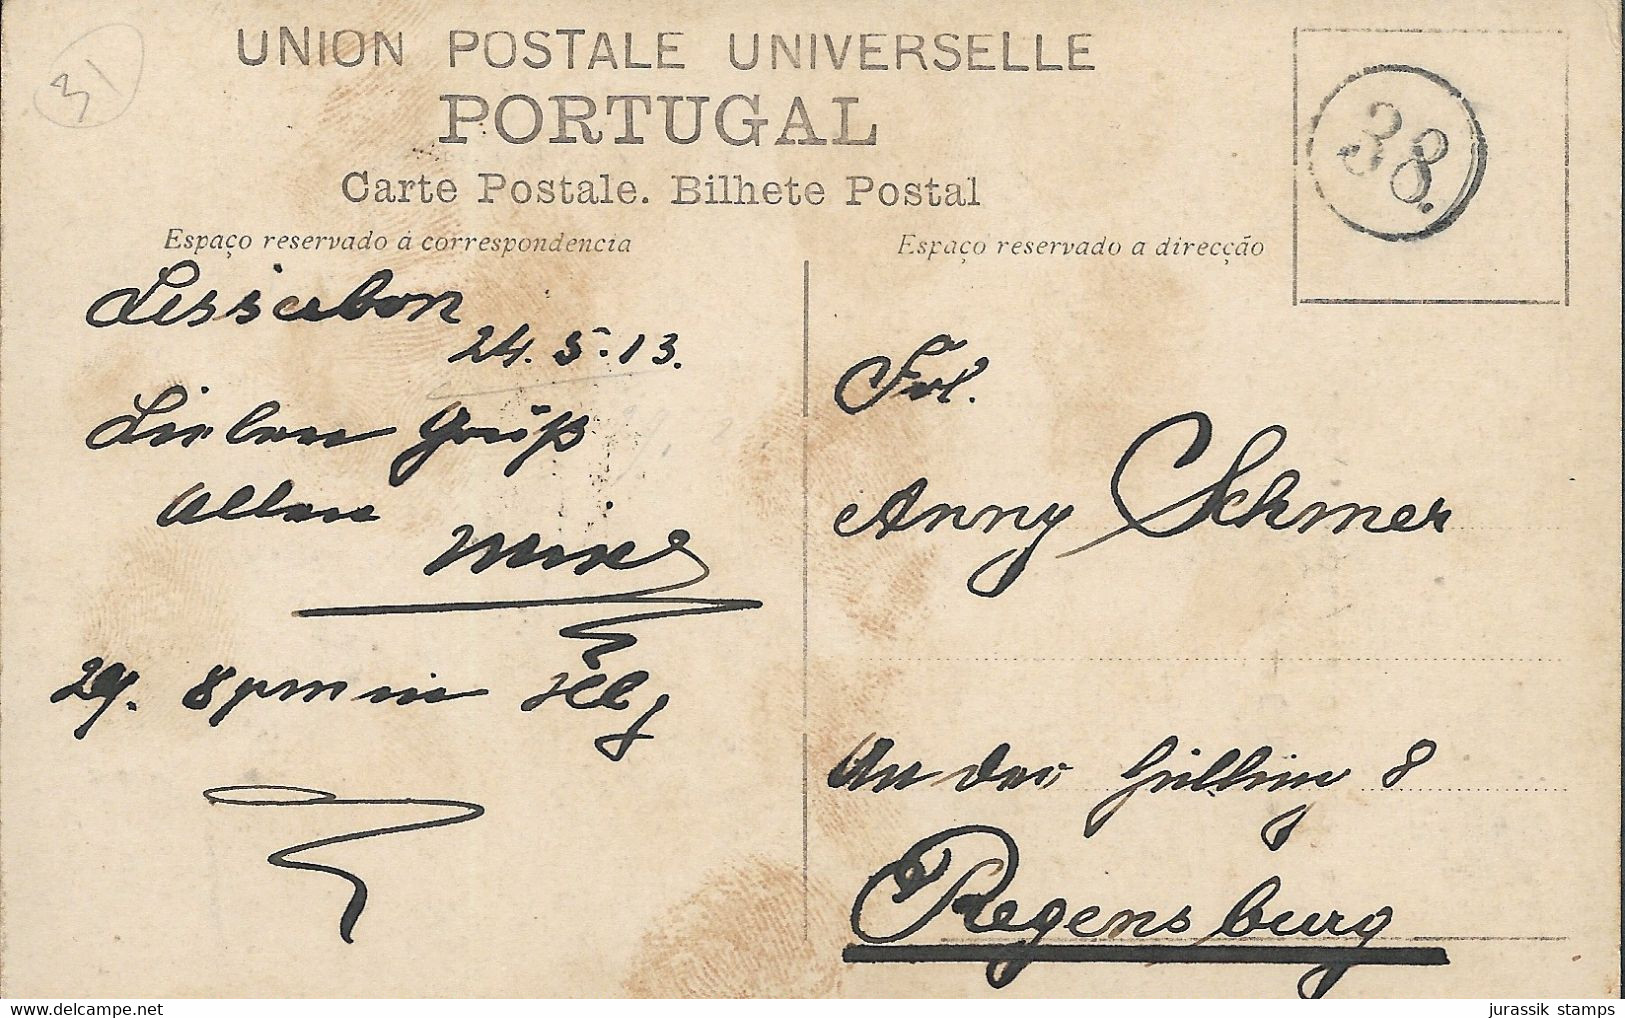 31
UNION POSTALE UNIVERSELLE
PORTUGAL
Carte Postale. Bilhete Postal
38.
Espaço reservado á correspondencia
Espaço reservado a direcção
Lissabon
24.5.13.
Lieben Gruß
Allen
29. 8
Frl.
Anny Schmer
An der Hülling 8
Regensburg
jurassik stamps